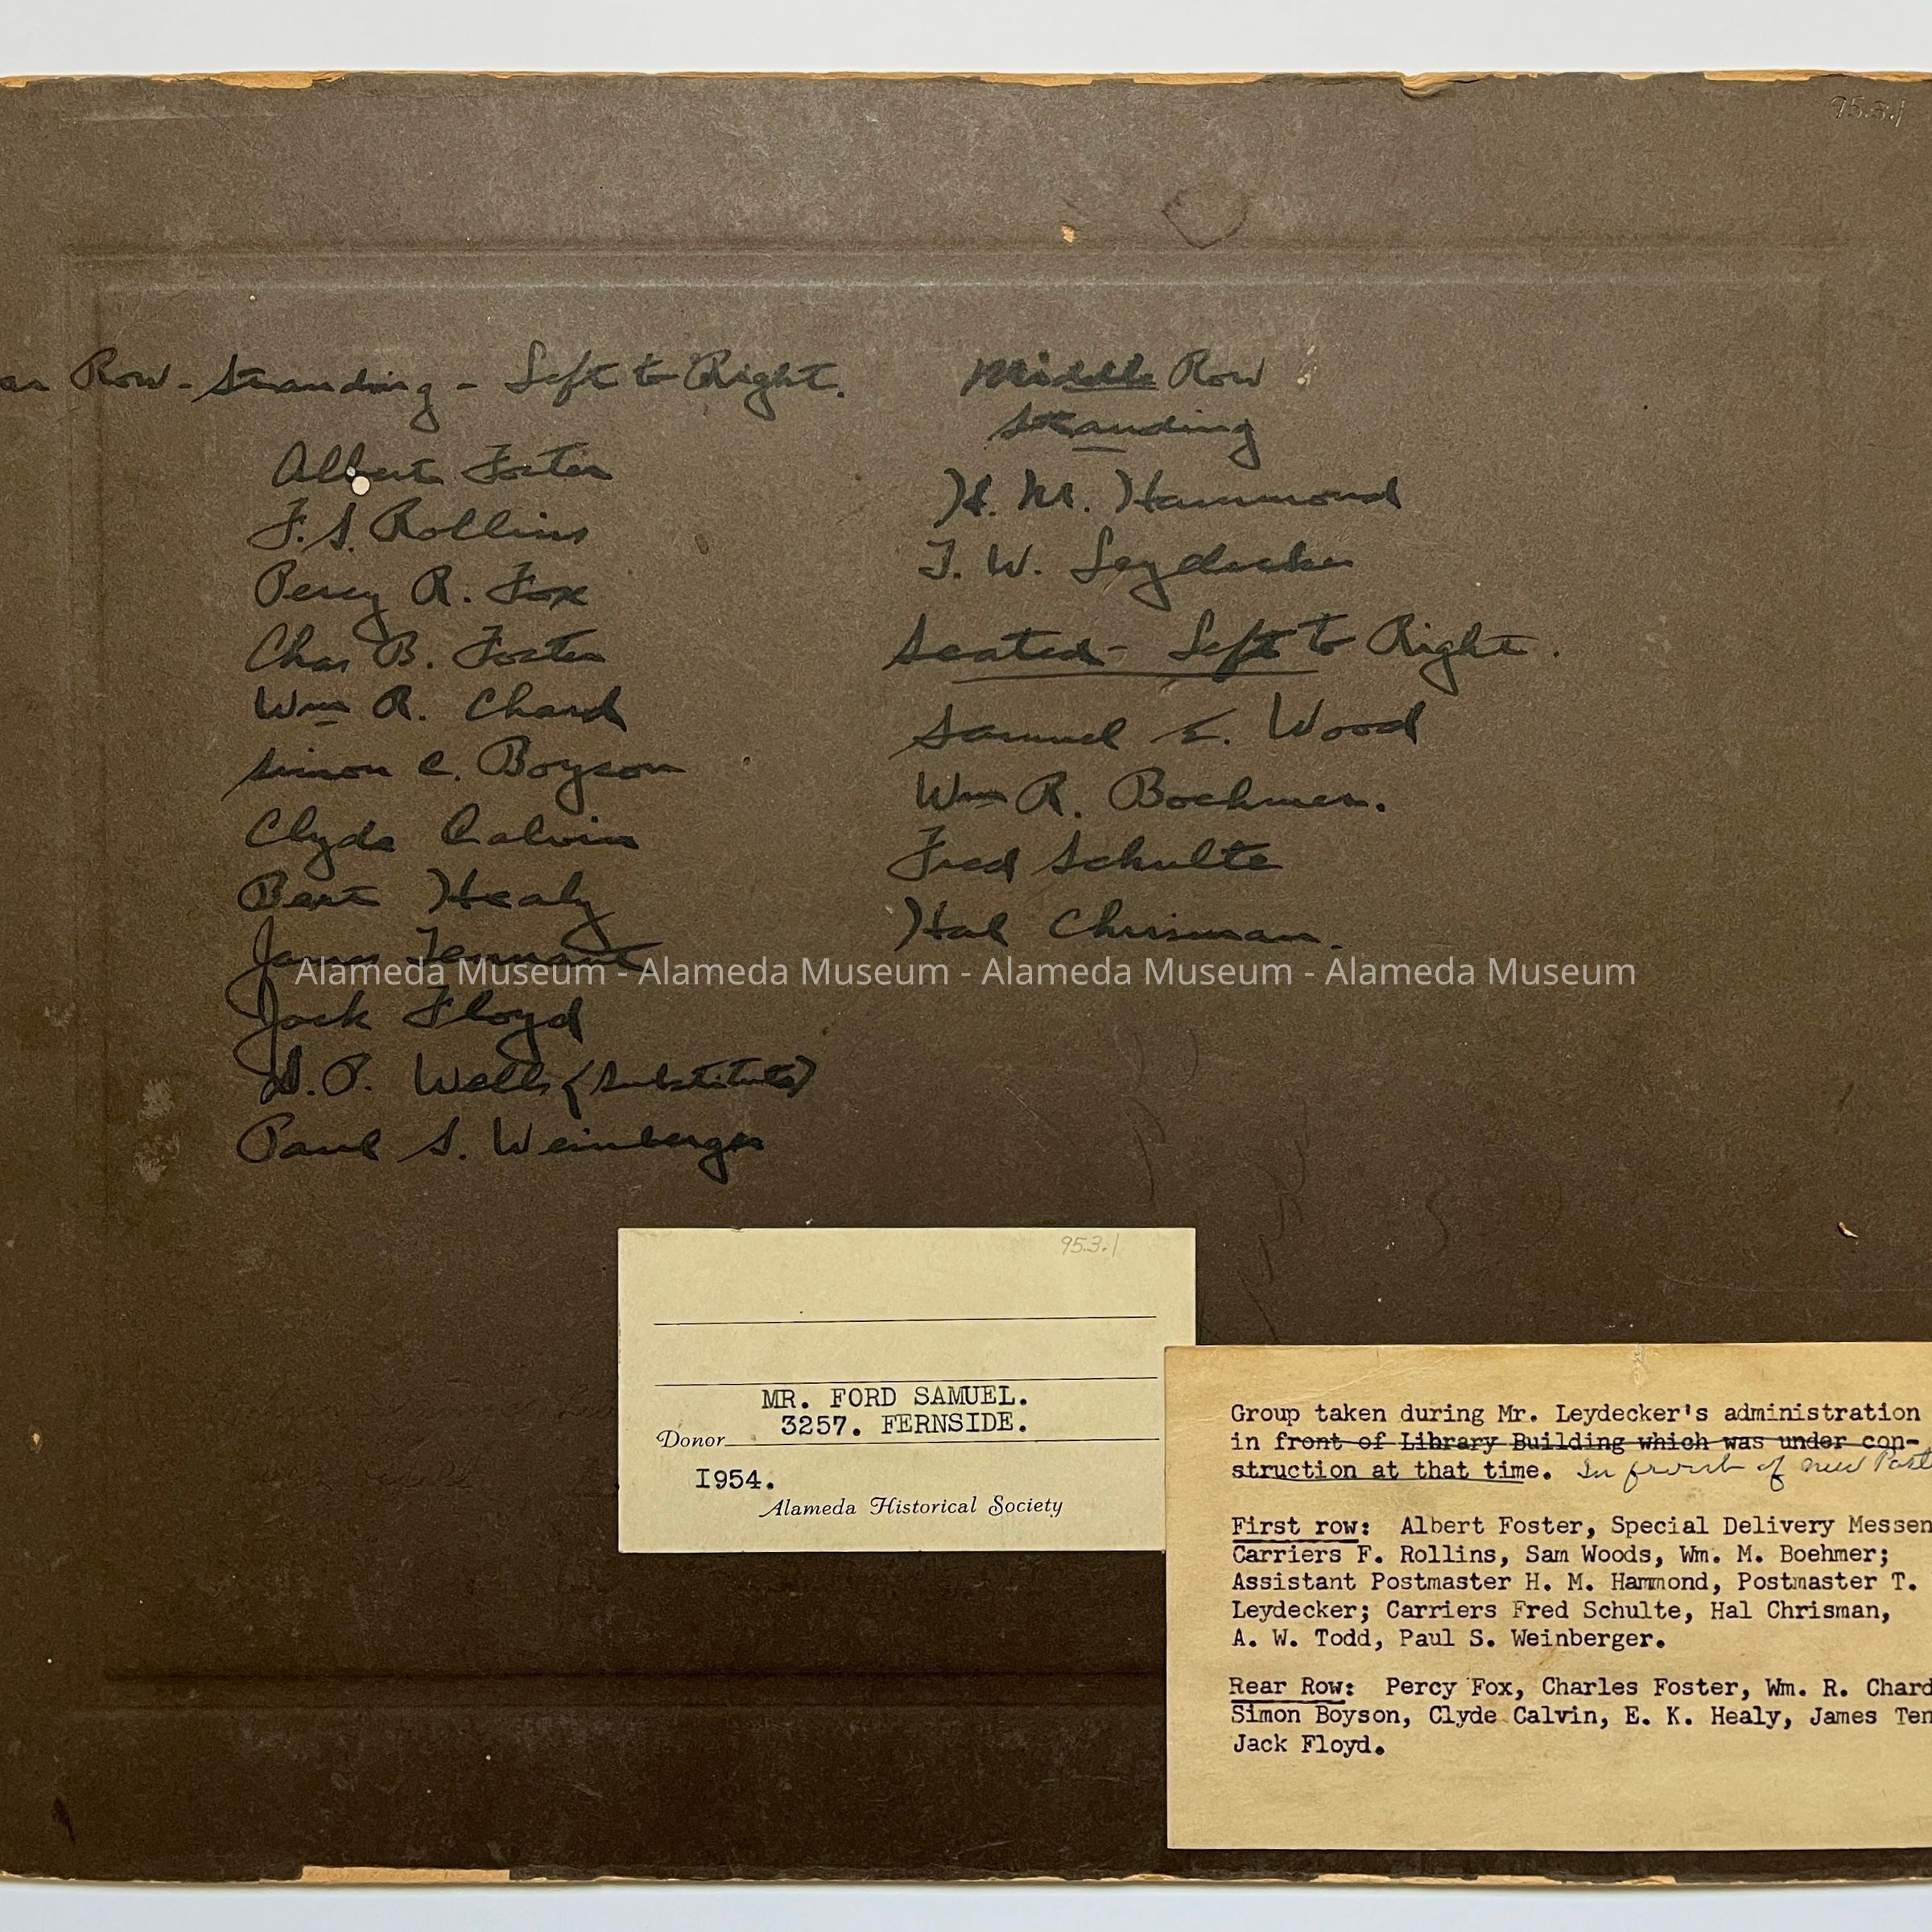 95.3.1
Row - Standing - Left to Right.
Albert Foster
F. S. Rollins
Percy R. Fox
Chas B. Foster
Wm R. Chard
Simon C. Boyson
Clyde Calvin
Bert Healy
James Tennant
Jack Floyd
D. P. Wells (Substitute)
Paul S. Weinberger
Middle Row
Standing
H. M. Hammond
T. W. Leydecker
Seated - Left to Right.
Samuel E. Wood
Wm R. Boehmer.
Fred Schulte
Hal Chrisman.
Alameda Museum - Alameda Museum - Alameda Museum - Alameda Museum
95.3.1
MR. FORD SAMUEL.
3257. FERNSIDE.
Donor
I954.
Alameda Historical Society
Group taken during Mr. Leydecker's administration
in front of Library Building which was under con-
struction at that time. In front of new Post
First row: Albert Foster, Special Delivery Messen
Carriers F. Rollins, Sam Woods, Wm. M. Boehmer;
Assistant Postmaster H. M. Hammond, Postmaster T.
Leydecker; Carriers Fred Schulte, Hal Chrisman,
A. W. Todd, Paul S. Weinberger.
Rear Row: Percy Fox, Charles Foster, Wm. R. Chard
Simon Boyson, Clyde Calvin, E. K. Healy, James Ten
Jack Floyd.